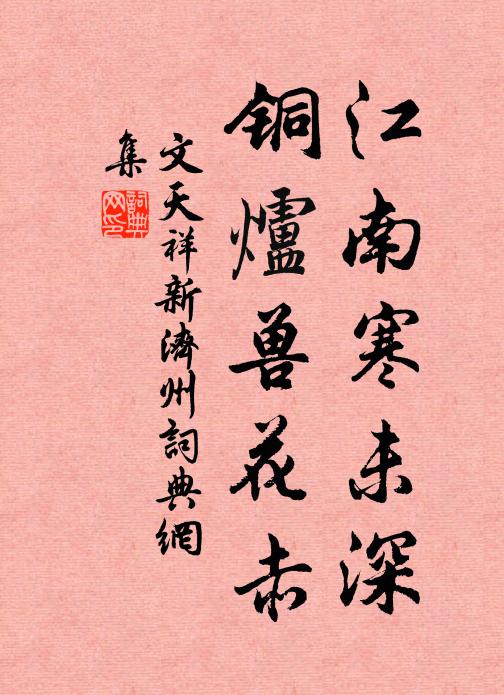 江南寒未深
铜爐兽花赤
文天祥新濟州詞典網
集
詞典
网印